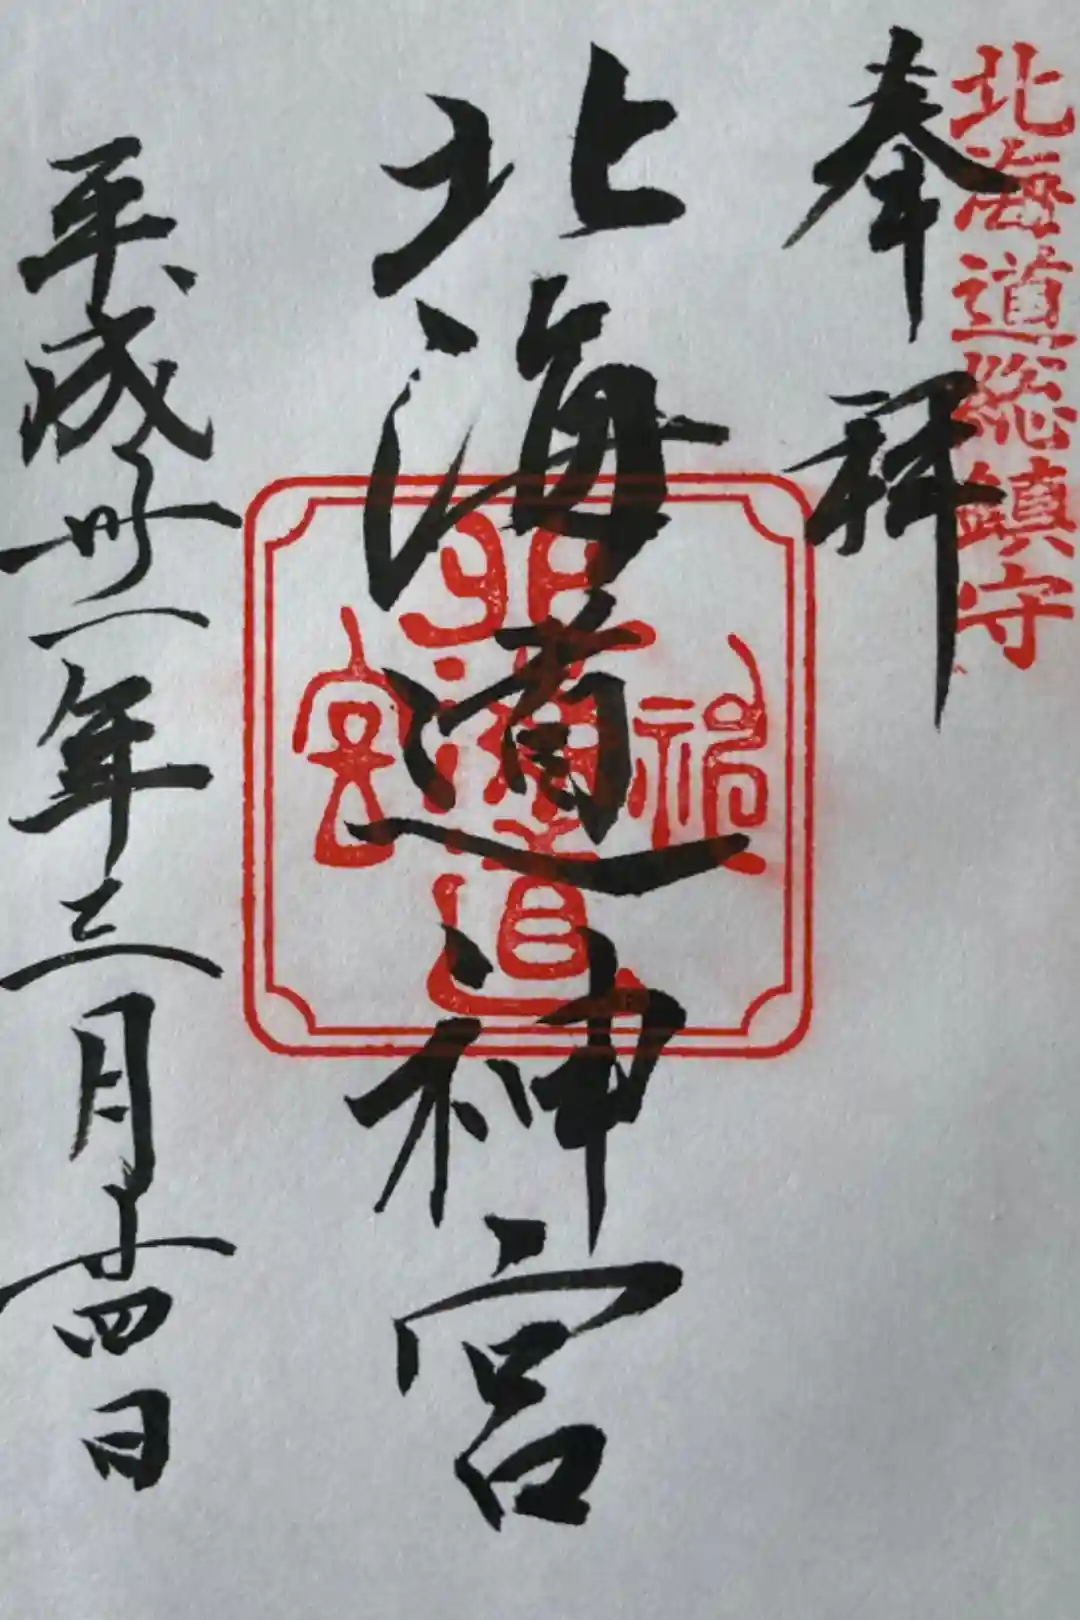 北海道総鎮守
奉拝
北海道神宮
北海道
神
宮
平成卅一年三月十四日